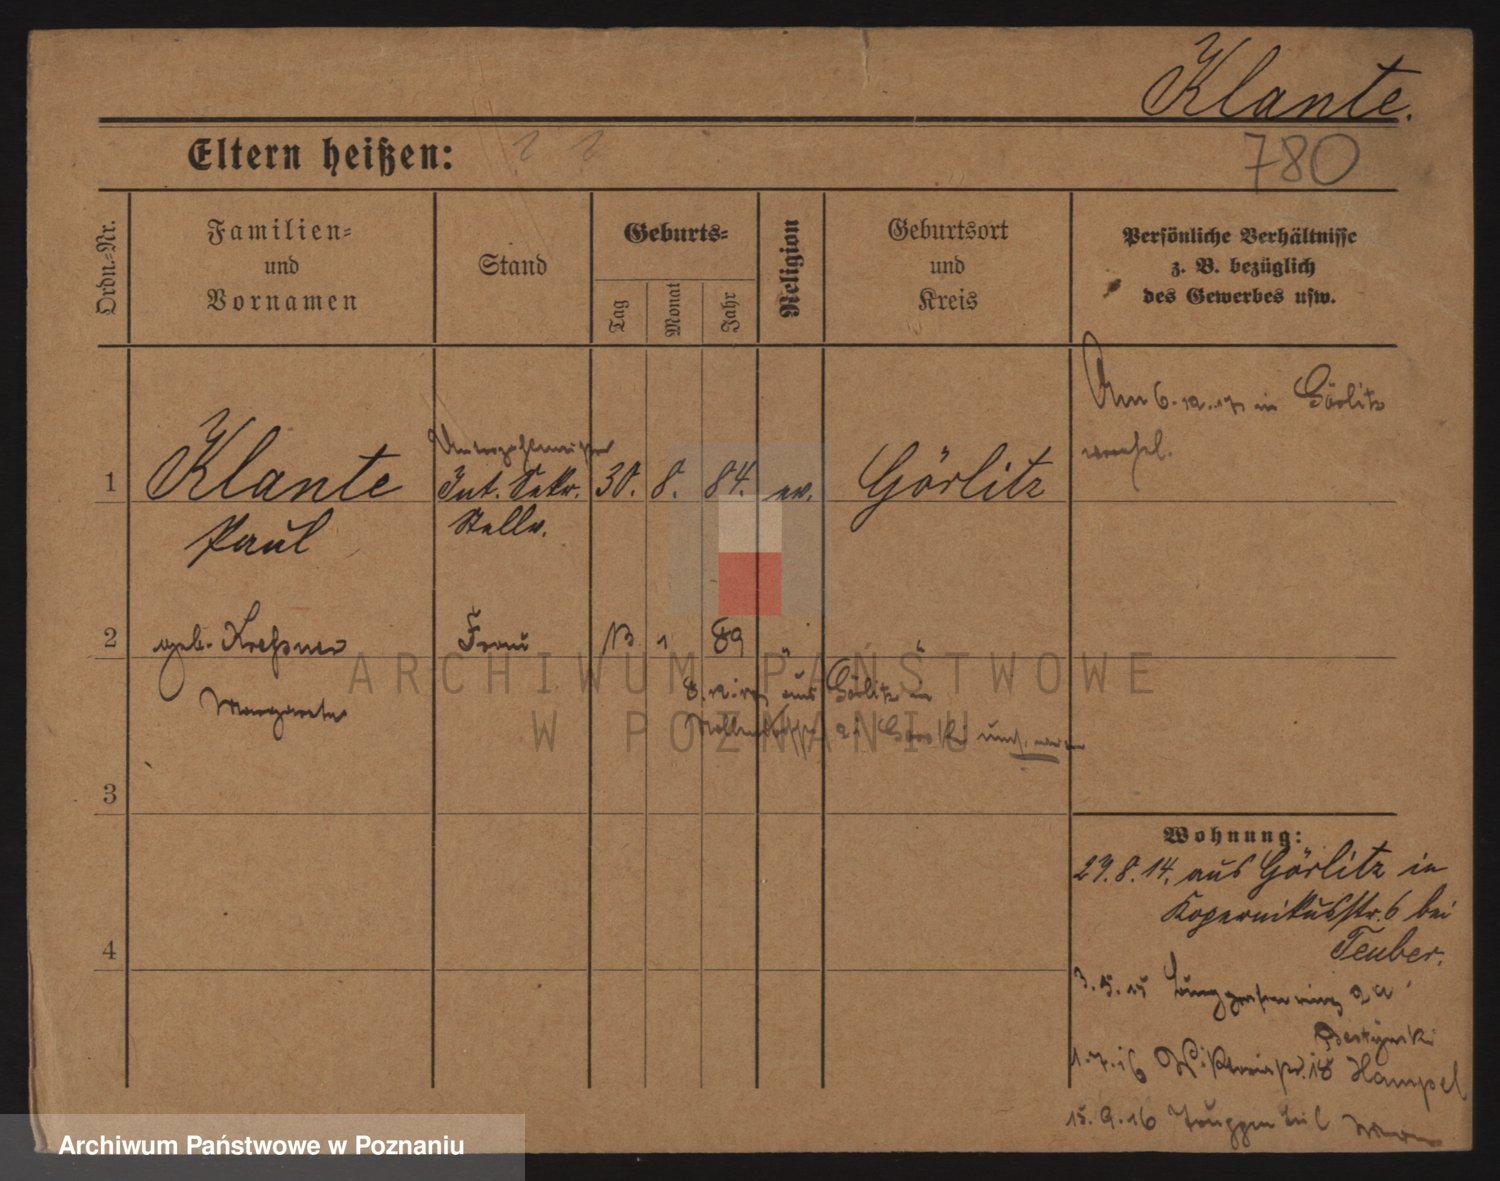 Klante.
Eltern heißen:
780
Ordn.-Nr.
Familien-
und
Vornamen
Stand
Geburts-
Tag
Monat
Jahr
Religion
Geburtsort
und
Kreis
Persönliche Verhältnisse
z. B. bezüglich
des Gewerbes usw.
Am 6.12.17 in Görlitz
1 Klante Int. Sekr. 30. 8. 84. ev. Görlitz
Paul Stellv.
2 geb. Kreßner Frau 13 1 89 " "
Margarete
aus Görlitz in
3
Wohnung:
29.8.14. aus Görlitz in
Kopernikusstr. 6 bei
Teuber.
4
3.5.15
1.7.16 18 Hampel
15.9.16
ARCHIWUM PAŃSTWOWE
W POZNANIU
Archiwum Państwowe w Poznaniu